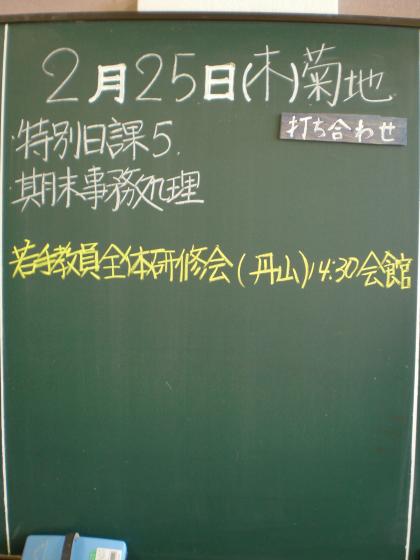 2月25日(木)菊地
打ち合わせ
・特別日課5.
・期末事務処理
若手教員全体研修会(丹山)14:30会館